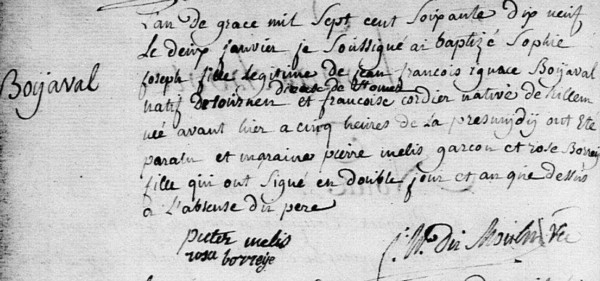 L'an de grace mil Sept cent Soixante dix neuf
Le deux janvier je Soussigné ai baptizé Sophie
Boijaval
joseph fille Legitime de jean francois ignace Boijaval
diocese de St omer
natif de tournen et francoise cordier native de Lillem
née avant hier a cinq heures de La ont été
parain et maraine pierre melis garcon et rose Borreije
fille qui ont Signé en double jour et an que dessus
a L'absense du pere
pieter melis
rosa borreije